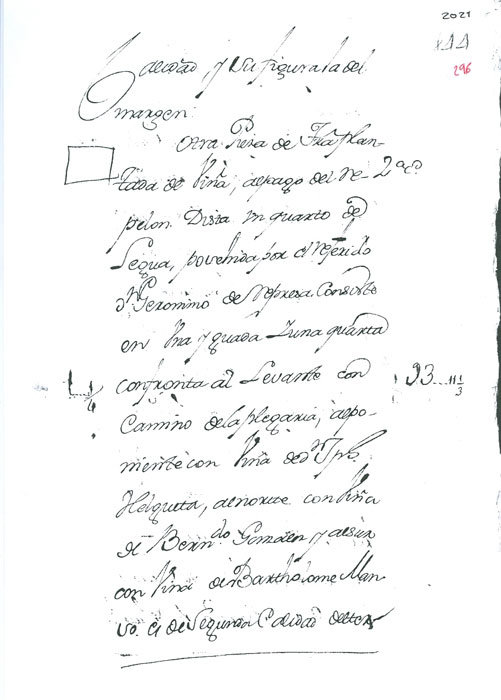 2021
296
calidad, y su figura la del
margen
Otra Pieza de Trã plan-
tada de Viña, al pago del Re-
pelon Dista un quarto de
Legua, povehida por el Referido
Dn Geronimo de Represa Consiste
en Una yguada y una quarta
confronta al Levante con
Camino de la plegaria, al po-
niente con Viña de dn Jph.
Helgueta, al norte con Viña
de Berndo Gonzalez y al sur
con Viña de Bartholome Man-
so. es de Segunda Calidad